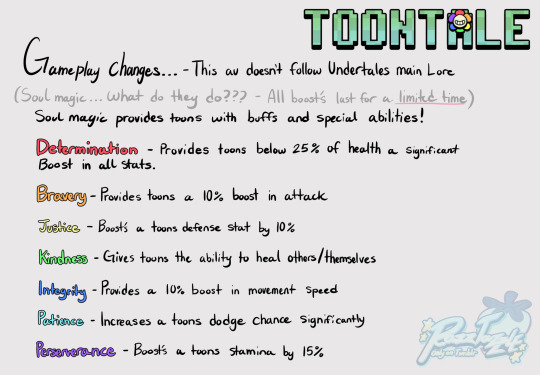 TOONTALE
Gameplay Changes... - This au doesn't follow Undertales main Lore
(Soul magic... What do they do??? - All boost's last for a limited time)
Soul magic provides toons with buffs and special abilities!
Determination - Provides toons below 25% of health a significant
Boost in all stats.
Bravery - Provides toons a 10% boost in attack
Justice - Boost's a toons defense stat by 10%
Kindness - Gives toons the ability to heal others/themselves
Integrity - Provides a 10% boost in movement speed
Patience - Increases a toons dodge chance significantly
Perseverance - Boost's a toons stamina by 15%